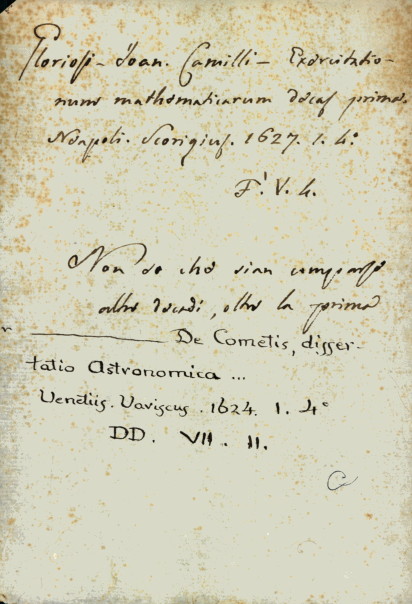 Gloriosi - Joan. Camilli - Exercitatio-
num mathematicarum decas prima.
Neapoli. Scorigius. 1627. 1. 4°
F. V. 4.
Non so che sian comparse
altre decadi, oltre la prima
— De Cometis, disser-
tatio Astronomica ...
Venetiis. Variscus. 1624. 1. 4°
DD. VII. II.